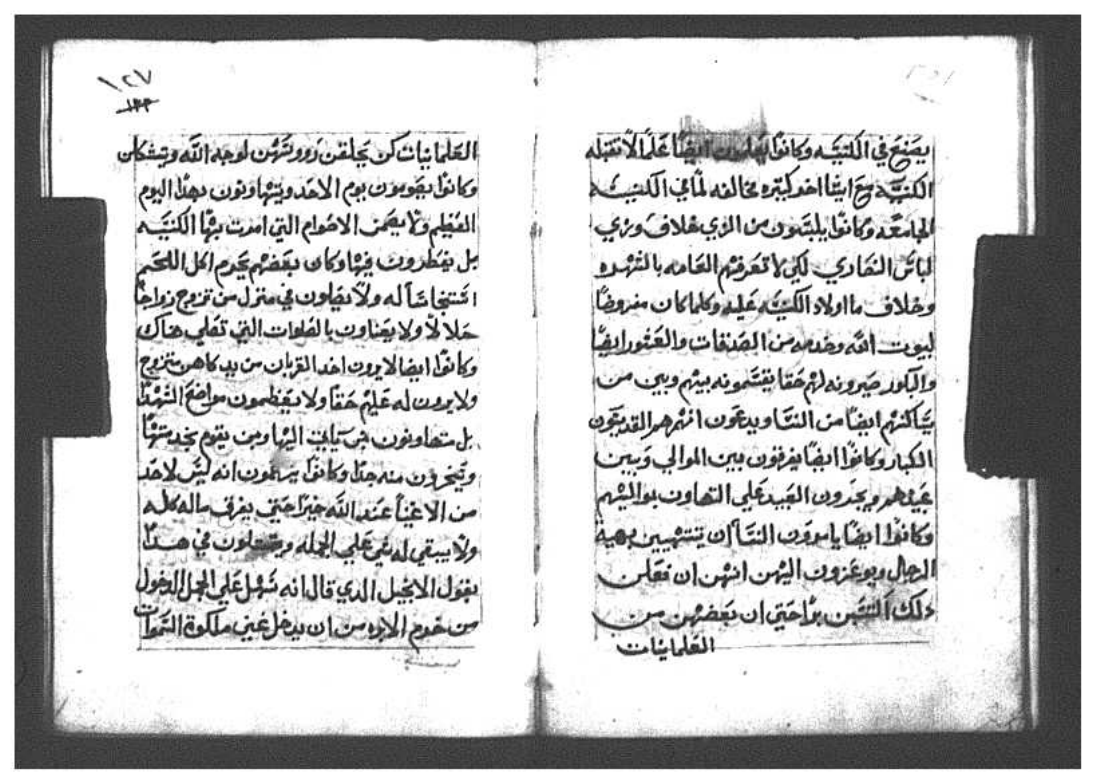 يصنع في الكنيسه وكانوا يعلمون ايضًا علمًا لا تقبله
الكنيسه مع اشيا اخر كتيره مخالفه لما في الكنيسه
الجامعه وكانوا يلبسون من الزي خلاف وزي
لباس النصاري لكي لا تعرفهم العامه بالشهره
وخلاف ما اولاد الكنيسه عليه وكلما كان مفروضًا
لبيوت الله وخدمه من الصدقات والعشور ايضًا
والبكور صيرونه لهم حقا يقتسمونه بينهم وبين من
يساكنهم ايضًا من النسا ويدعون انهم هم القديسون
الكبار وكانوا ايضًا يفرقون بين الموالي وبين
عبيدهم ويجرون العبيد علي التهاون بمواليهم
وكانوا ايضًا يامرون النسا ان يتشبهين بهية
الرجال ويوعزون اليهن انهن ان فعلن
دلك اكتسبن برًا حتي ان بعضهن من
العلمانيات
١٢٧
١٣٣
العلمانيات كن يحلقن رووسهن لوجه الله ويتشكلن
وكانوا يصومون يوم الاحد ويتهاونون بهدا اليوم
العظيم ولا يصمن الاصوام التي امرت بها الكنيسه
بل يفطرون فيها وكان بعضهم يحرم اكل اللحم
استنجاسًا له ولا يصلون في منزل من تزوج زواجًا
حلالًا ولا يعتنون بالصلوات التي تصلي هناك
وكانوا ايضا لا يرون اخد القربان من يد كاهن متزوج
ولا يرون له عليهم حقًا ولا يعظمون مواضع الشهدا
بل يتهاونون بمن ياتي اليها وبمن يقوم بخدمتها
ويسخرون منه جدًا وكانوا يرسمون انه ليس لاحد
من الاغنيا عند الله خيرًا حتي يفرق ماله كله
ولا يبقي له شي علي الجمله ويتعللون في هدا
بقول الانجيل الدي قال انه سهل علي الجمل الدخول
من خرم الابره من ان يدخل غني ملكوة السموات